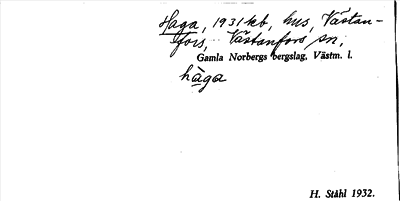 Haga, 1931 kb, hus, Västan-
fors, Västanfors sn,
Gamla Norbergs bergslag, Västm. l.
håga
H. Ståhl 1932.